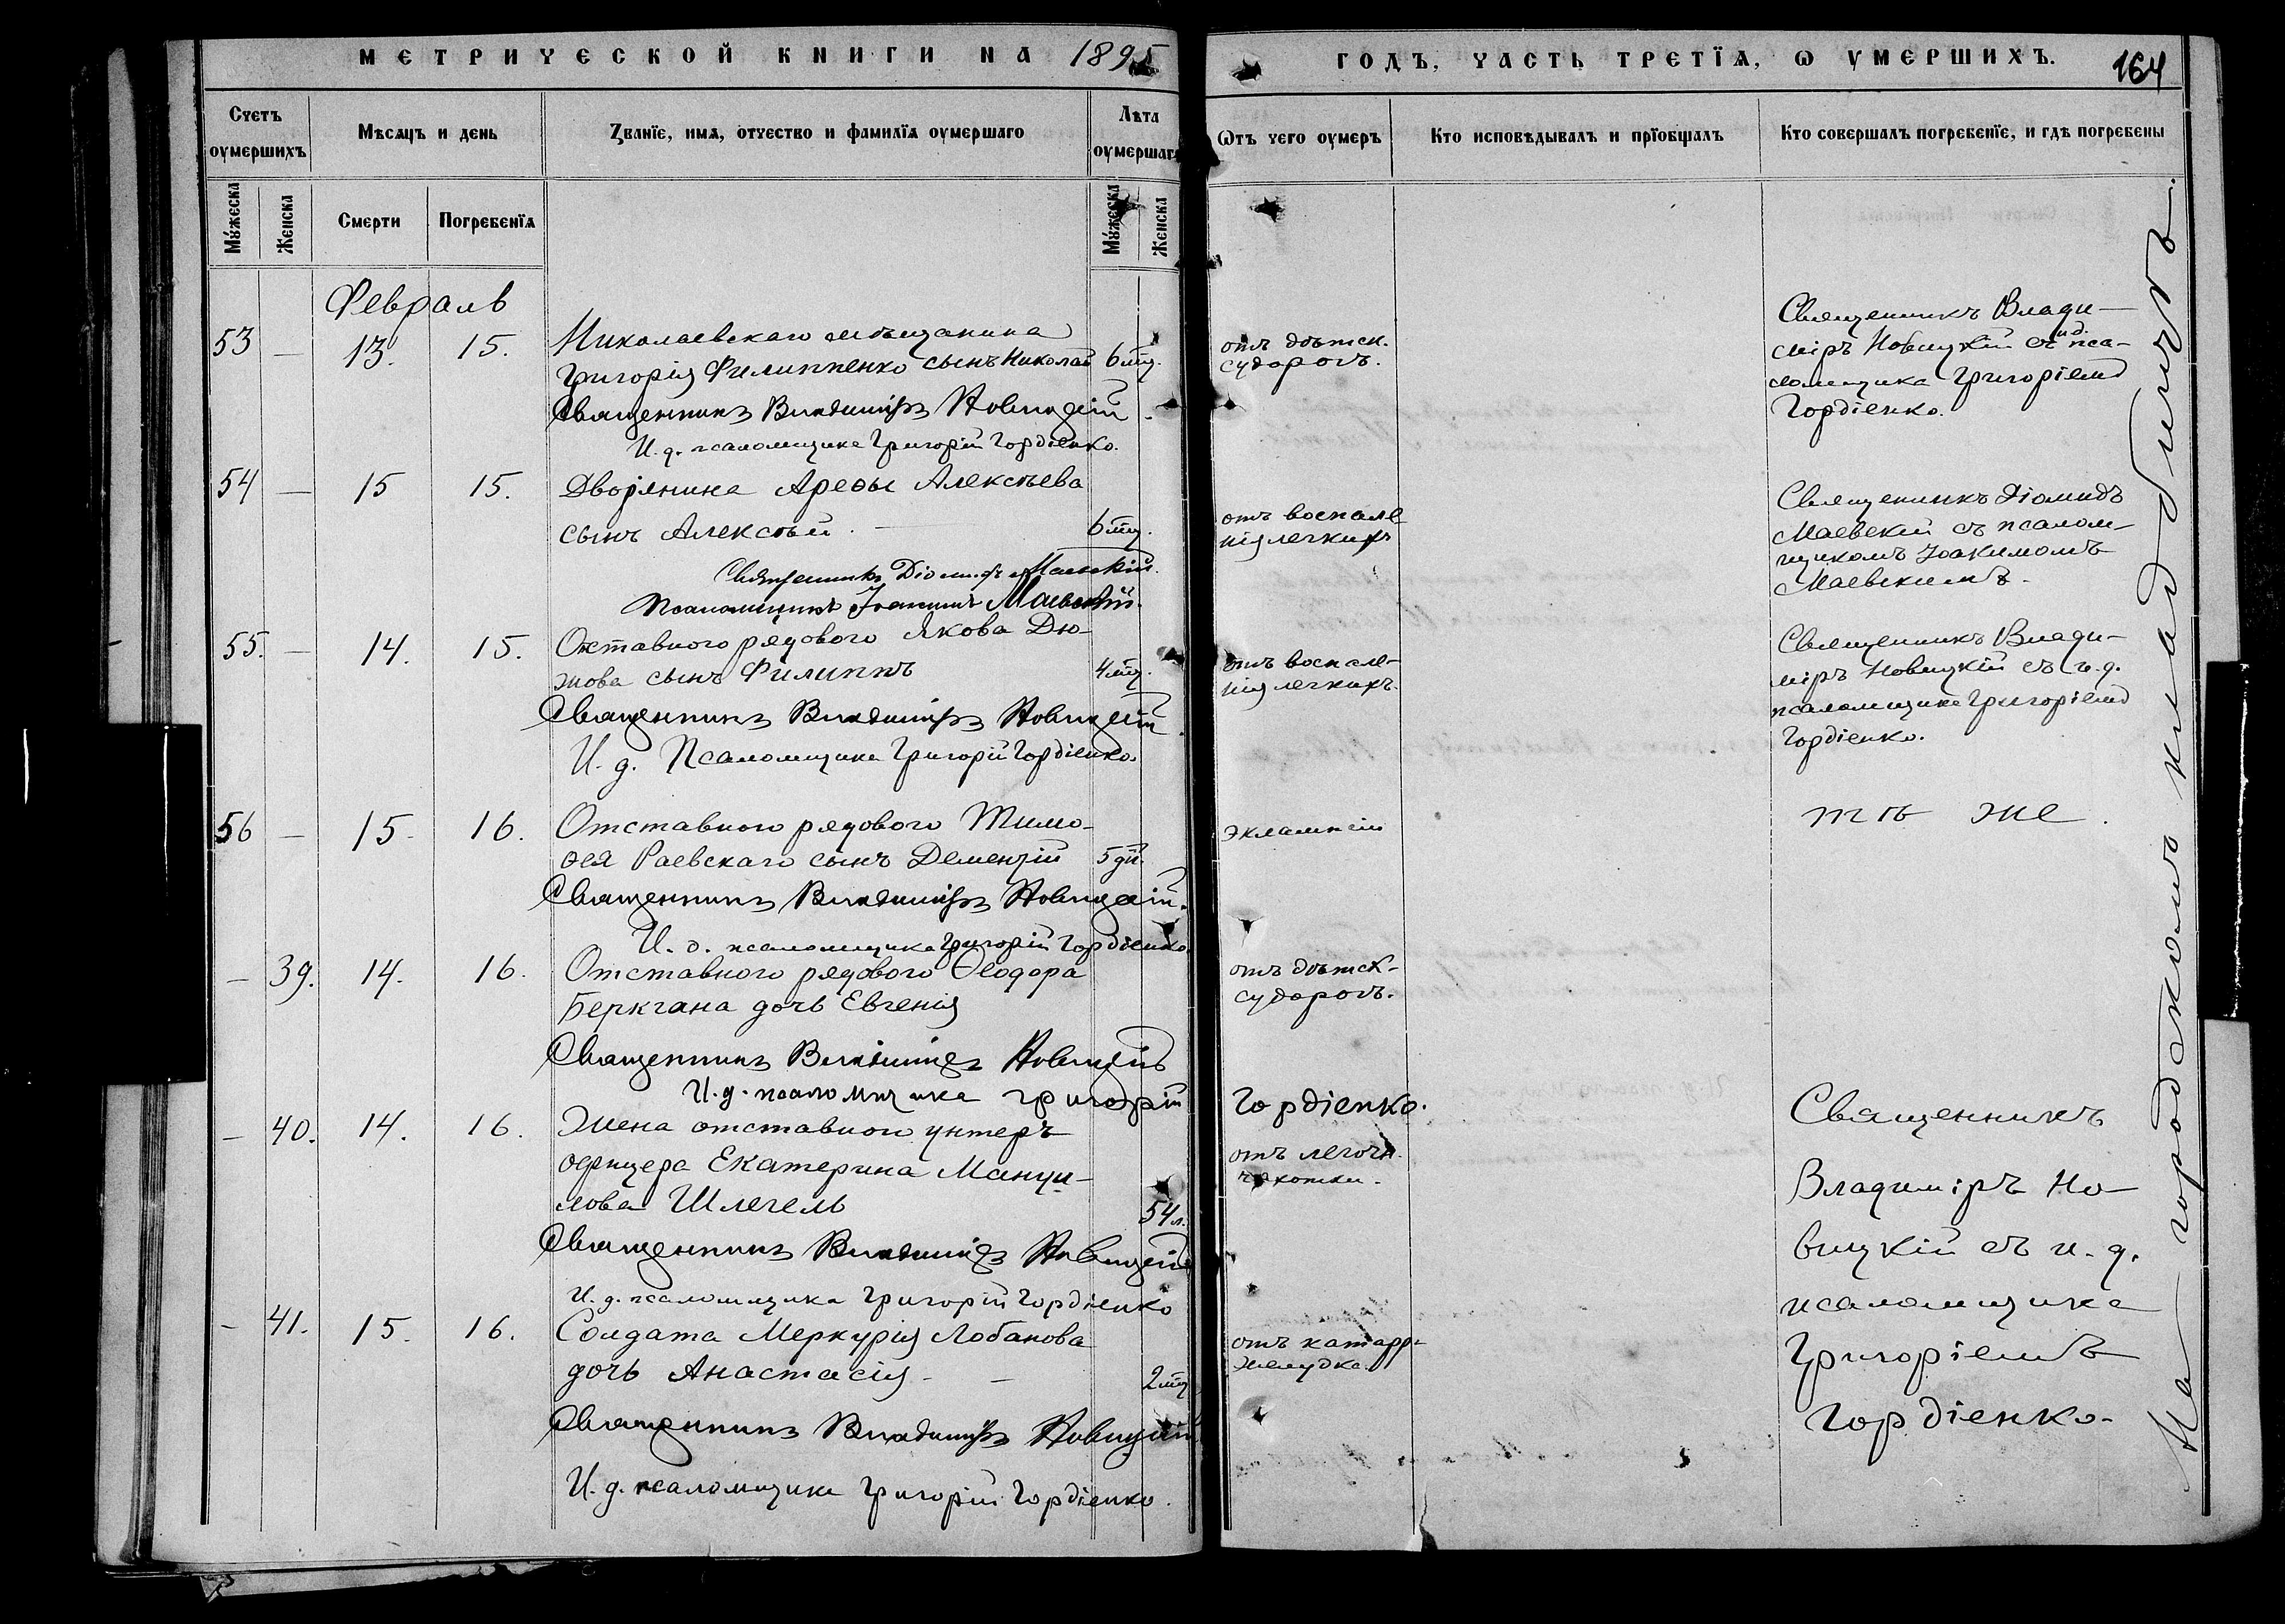 МЕТРИЧЕСКОЙ КНИГИ НА 1895
ГОДЪ, ЧАСТЬ ТРЕТЇЯ, Ѡ УМЕРШИХЪ.
164
Счетъ оумершихъ
Мѣсяцъ и день
Званїе, имя, отчество и фамилїя оумершаго
Лѣта оумершаго
Ѿтъ чего оумеръ
Кто исповѣдывалъ и прїобщалъ
Кто совершалъ погребенїе, и гдѣ погребены
Мужеска
Женска
Смерти
Погребенїя
Мужеска
Женска
Февраль
53 — 13. 15.
Николаевскаго мѣщанина
Григорія Филиппенко сынъ Николай 6 мц.
отъ дѣтск.
судорогъ.
Священникъ Влади-
міръ Новицкій съ и.д. пса-
ломщика Григоріемъ
Гордіенко.
Священникъ Владиміръ Новицкій
И. д. псаломщика Григорій Гордіенко.
54 — 15 15.
Дворянина Арефы Алексѣева
сынъ Алексѣй. — 6 мц.
отъ воспале
нія легкихъ
Священникъ Діомидъ
Маевскій съ псалом-
щикомъ Іоакимомъ
Маевскимъ.
Священникъ Діомидъ Маевскій.
Псаломщикъ Іоакимъ Маевскій.
55. — 14. 15.
Отставного рядового Якова Дю-
жова сынъ Филиппъ 4 мц.
отъ воспале-
нія легкихъ.
Священникъ Влади-
міръ Новицкій съ и. д.
псаломщика Григоріемъ
Гордіенко.
Священникъ Владиміръ Новицкій
И. д. Псаломщика Григорій Гордіенко
56 — 15. 16.
Отставного рядового Тимо-
ѳея Раевскаго сынъ Дементій 5 дн.
эклампсіи
тѣ же.
Священникъ Владиміръ Новицкій.
И. д. псаломщика Григорій Гордіенко
— 39. 14. 16.
Отставного рядового Ѳеодора
Беркгана дочь Евгенія
отъ дѣтск-
судорогъ.
Священникъ Владиміръ Новицкій
И. д. псаломщика Григорій Гордіенко.
— 40. 14. 16.
Жена отставного унтеръ
офицера Екатерина Мануи-
лова Шлегель 54 л.
отъ легочн.
чахотки.
Священникъ Владиміръ Новицкій
И. д. псаломщика Григорій Гордіенко
— 41. 15. 16.
Солдата Меркурія Лобанова
дочь Анастасія — — 2 мц
отъ катарр-
желудка.
Священникъ Владиміръ Новицкій
И. д. псаломщика Григорій Гордіенко.
Священникъ
Владиміръ Но-
вицкій съ и. д.
псаломщика
Григоріемъ
Гордіенко.
На городскомъ кладбищѣ.